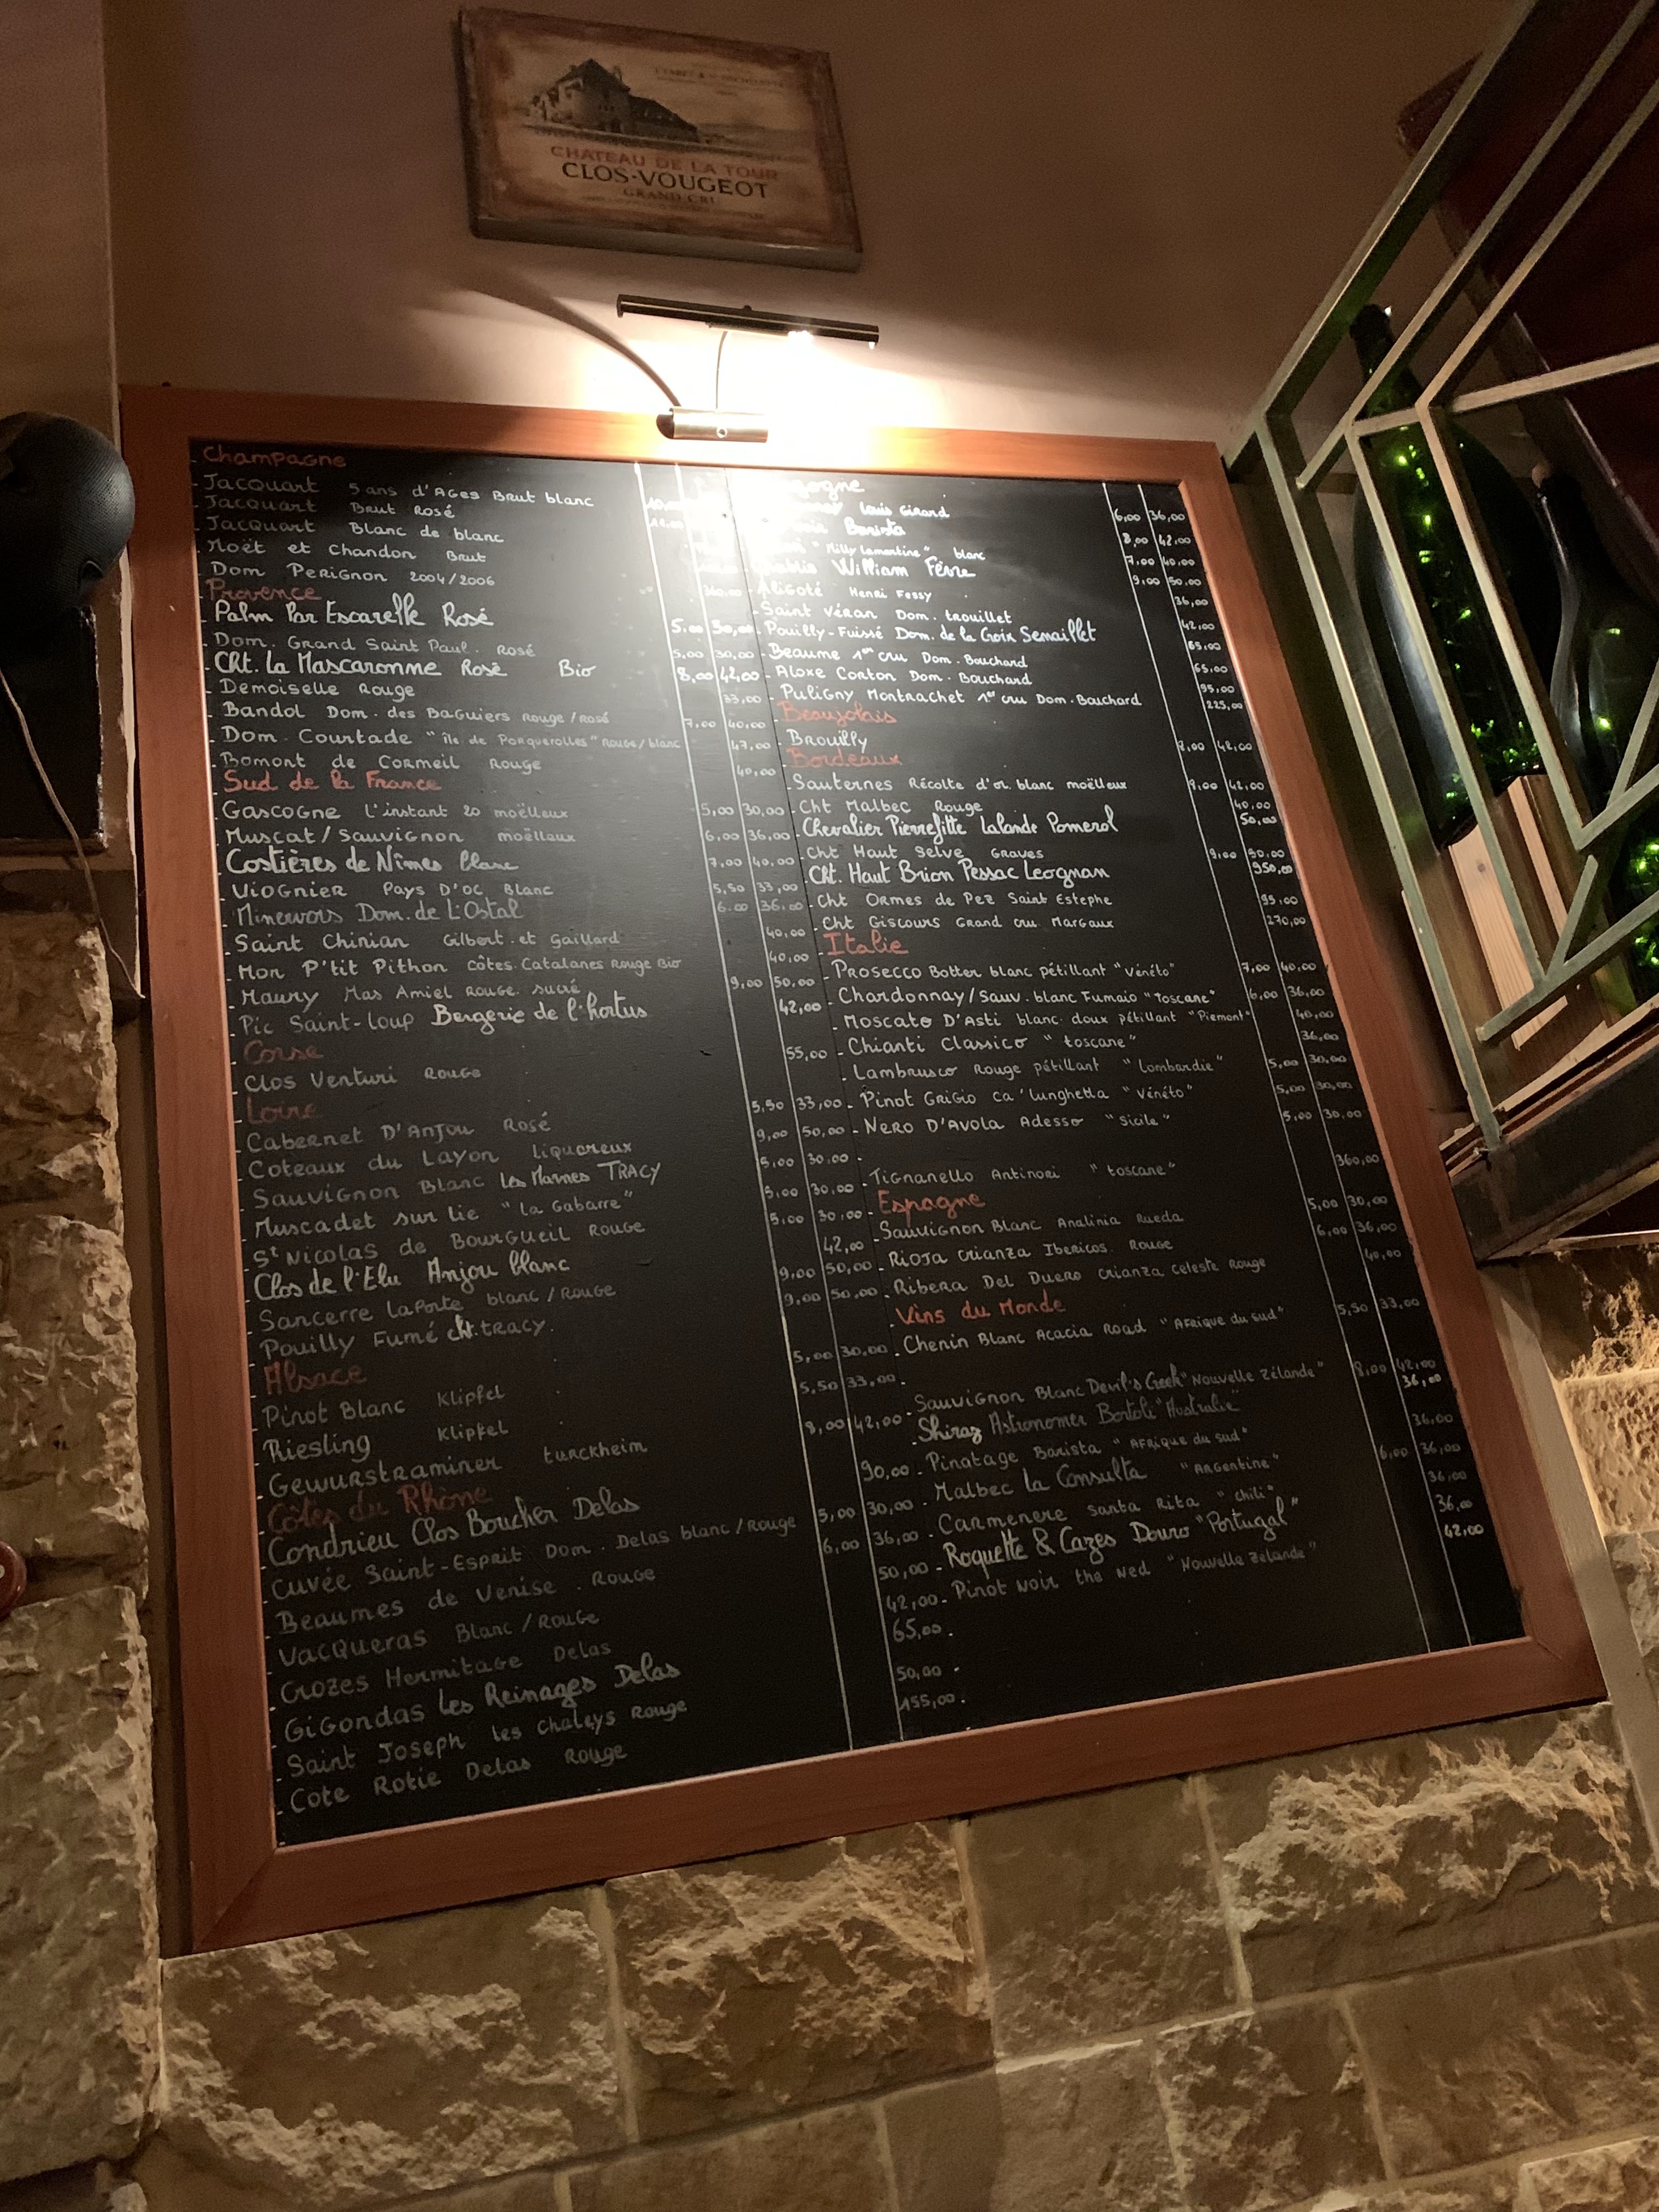 CHATEAU DE LA TOUR
CLOS-VOUGEOT
GRAND CRU
Champagne
- Jacquart 5 ans d'Ages Brut blanc
- Jacquart Brut Rosé
- Jacquart Blanc de blanc
- Moët et Chandon Brut
- Dom Perignon 2004/2006 360.00
Provence
- Palm Par Escarelle Rosé 5.00 30,00
- Dom. Grand Saint Paul. Rosé 5,00 30,00
- Cht. la Mascaronne Rosé Bio 8,00 42,00
- Demoiselle Rouge 33,00
- Bandol Dom. des Baguiers rouge/rosé 7,00 40,00
- Dom. Courtade "île de Porquerolles" rouge/blanc 47,00
- Bomont de Cormeil Rouge 40,00
Sud de la France
- Gascogne L'instant 20 moëlleux 5,00 30,00
- Muscat/Sauvignon moëlleux 6,00 36,00
- Costières de Nîmes blanc 7,00 40,00
- Viognier Pays D'oc Blanc 5,50 33,00
- Minervois Dom. de L'Ostal 6.00 36.00
- Saint Chinian Gilbert et Gaillard 40,00
- Mon P'tit Pithon côtes Catalanes Rouge Bio 40,00
- Maury Mas Amiel Rouge sucré 9,00 50,00
- Pic Saint-Loup Bergerie de l'hortus 42,00
- Corse
- Clos Venturi Rouge 55,00
- Loire
- Cabernet D'Anjou Rosé 5,50 33,00
- Coteaux du Layon liquoreux 9,00 50,00
- Sauvignon Blanc Les Marnes TRACY 5,00 30,00
- Muscadet sur lie "la Gabarre" 5,00 30,00
- St Nicolas de Bourgueil Rouge 5,00 30,00
- Clos de l'Elu Anjou blanc 42,00
- Sancerre Laporte blanc/Rouge 9,00 50,00
- Pouilly Fumé cht. tracy. 9,00 50,00
- Alsace
- Pinot Blanc Klipfel 5,00 30,00
- Riesling Klipfel 5,50 33,00
- Gewurstraminer turckheim 8,00 42,00
- Côtes du Rhône
- Condrieu Clos Boucher Delas 90,00
- Cuvée Saint-Esprit Dom. Delas blanc/Rouge 5,00 30,00
- Beaumes de Venise. Rouge 6,00 36,00
- Vacqueras Blanc/Rouge 50,00
- Crozes Hermitage Delas 42,00
- Gigondas Les Reinages Delas 65,00
- Saint Joseph les Challeys Rouge 50,00
- Cote Rotie Delas Rouge 155,00
Louis Girard 6,00 36,00
Barista 8,00 42,00
"Milly Lamartine" blanc 7,00 40,00
Chablis William Fèvre 9,00 50,00
- Aligoté Henri Fessy 36,00
- Saint Véran Dom. trouillet 42,00
- Pouilly-Fuissé Dom. de la Croix Senaillet 65,00
- Beaume 1er cru Dom. Bouchard 65,00
- Aloxe Corton Dom. Bouchard 95,00
- Puligny Montrachet 1er cru Dom. Bouchard 225,00
- Beaujolais
- Brouilly 8,00 42,00
- Bordeaux
- Sauternes Récolte d'or blanc moëlleux 8,00 42,00
- Cht Malbec Rouge 40,00
- Chevalier Pierrefitte Lalande Pomerol 50,00
- Cht Haut Selve Graves 9,00 50,00
- Cht. Haut Brion Pessac Leognan 950,00
- Cht Ormes de Pez Saint Estephe 95,00
- Cht Giscours Grand cru Margaux 270,00
- Italie
- Prosecco Botter blanc pétillant "Vénéto" 7,00 40,00
- Chardonnay/Sauv. blanc Fumaio "toscane" 6,00 36,00
- Moscato D'Asti blanc doux pétillant "Piemont" 40,00
- Chianti Classico "toscane" 36,00
- Lambrusco Rouge pétillant "Lombardie" 5,00 30,00
- Pinot Grigio Ca'lunghetta "Vénéto" 5,00 30,00
- Nero D'Avola Adesso "Sicile" 5,00 30,00
- Tignanello Antinori "toscane" 360,00
- Espagne
- Sauvignon Blanc Analinia Rueda 5,00 30,00
- Rioja crianza Ibericos. Rouge 6,00 36,00
- Ribera Del Duero crianza celeste Rouge 40,00
- Vins du Monde
- Chenin Blanc Acacia Road "Afrique du sud" 5,50 33,00
- Sauvignon Blanc Devil's Creek "Nouvelle Zélande" 8,00 42,00
- Shiraz Astronomer Bortoli "Australie" 36,00
- Pinotage Barista "Afrique du sud" 36,00
- Malbec la Consulta "Argentine" 6,00 36,00
- Carmenere Santa Rita "chili" 36,00
- Roquette & Cazes Douro "Portugal" 36,00
- Pinot Noir the Ned "Nouvelle Zelande" 42,00